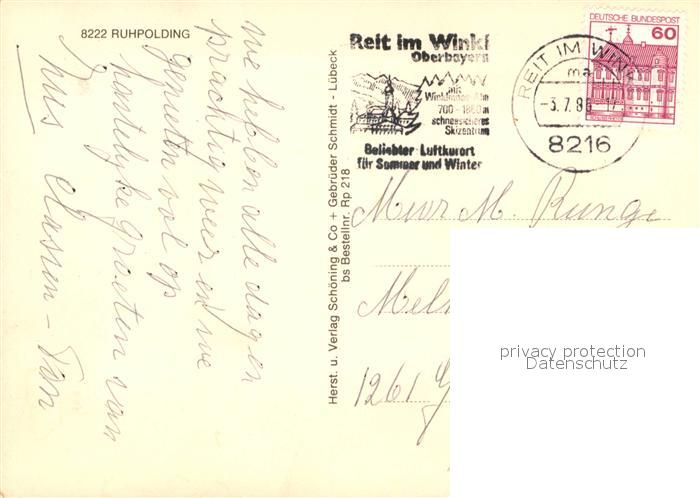 8222 RUHPOLDING
we hebben alle dagen
prachtig weer en we
genieten vol op
hartelyke groeten van
Nus Classen - Tan
Herst. u. Verlag Schöning & Co + Gebrüder Schmidt - Lübeck
bs Bestellnr. Rp 218
Reit im Winkl
Oberbayern
mit
Winklmoos-Alm
700 - 1860 m
schneesicheres
Skizentrum
Beliebter Luftkurort
für Sommer und Winter
REIT IM WINKL
-3.7.86-17
8216
DEUTSCHE BUNDESPOST
60
Mevr M. Runge
Meln
1261 G
privacy protection
Datenschutz